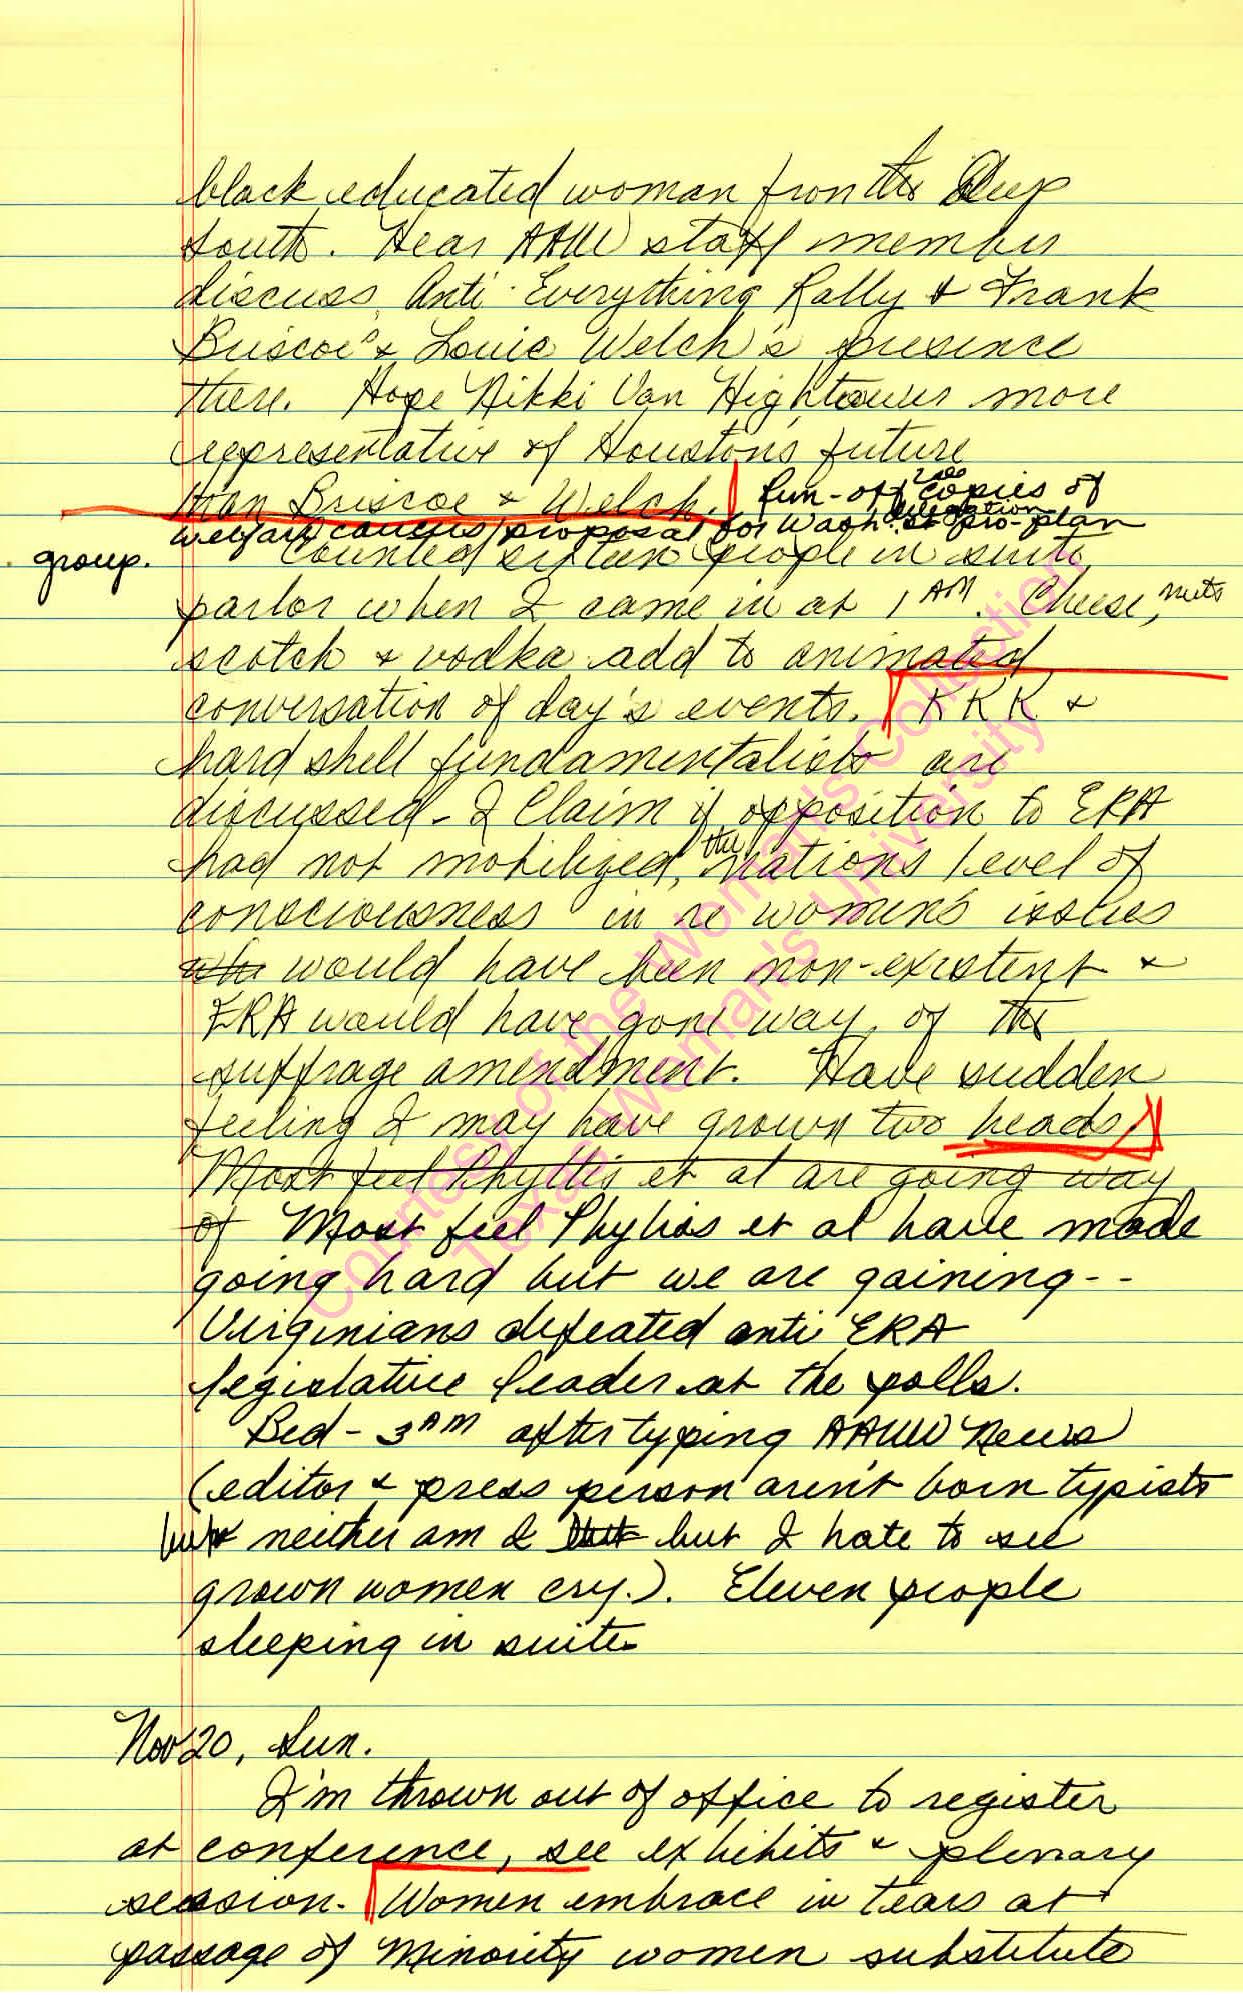 black educated woman from the Deep
South. Hear AAUW staff member
discuss Anti-Everything Rally & Frank
Briscoe's & Louie Welch's presence
there. Hope Nikki Van Hightower more
representative of Houston's future
than Briscoe & Welch. Run-off 200 copies of
welfare caucus proposal for Wash. St delegation pro-plan
group.
Counted sixteen people in suite
parlor when I came in at 1 AM. Cheese, nuts
scotch & vodka add to animated
conversation of day's events. KKK &
hard shell fundamentalists are
discussed - I claim if opposition to ERA
had not mobilized, the nation's level of
consciousness in re women's issues
who would have been non-existent &
ERA would have gone way of the
suffrage amendment. Have sudden
feeling I may have grown two heads.
Most feel Phyllis et al are going way
of Most feel Phyliss et al have made
going hard but we are gaining--
Virginians defeated anti ERA
legislative leader at the polls.
Bed - 3 AM after typing AAUW News
(editor & press person aren't born typists
but neither am I but but I hate to see
grown women cry.). Eleven people
sleeping in suite.
Nov 20, Sun.
I'm thrown out of office to register
at conference, see exhibits & plenary
session. Women embrace in tears at
passage of Minority women substitute
Courtesy of the Woman's Collection
Texas Woman's University